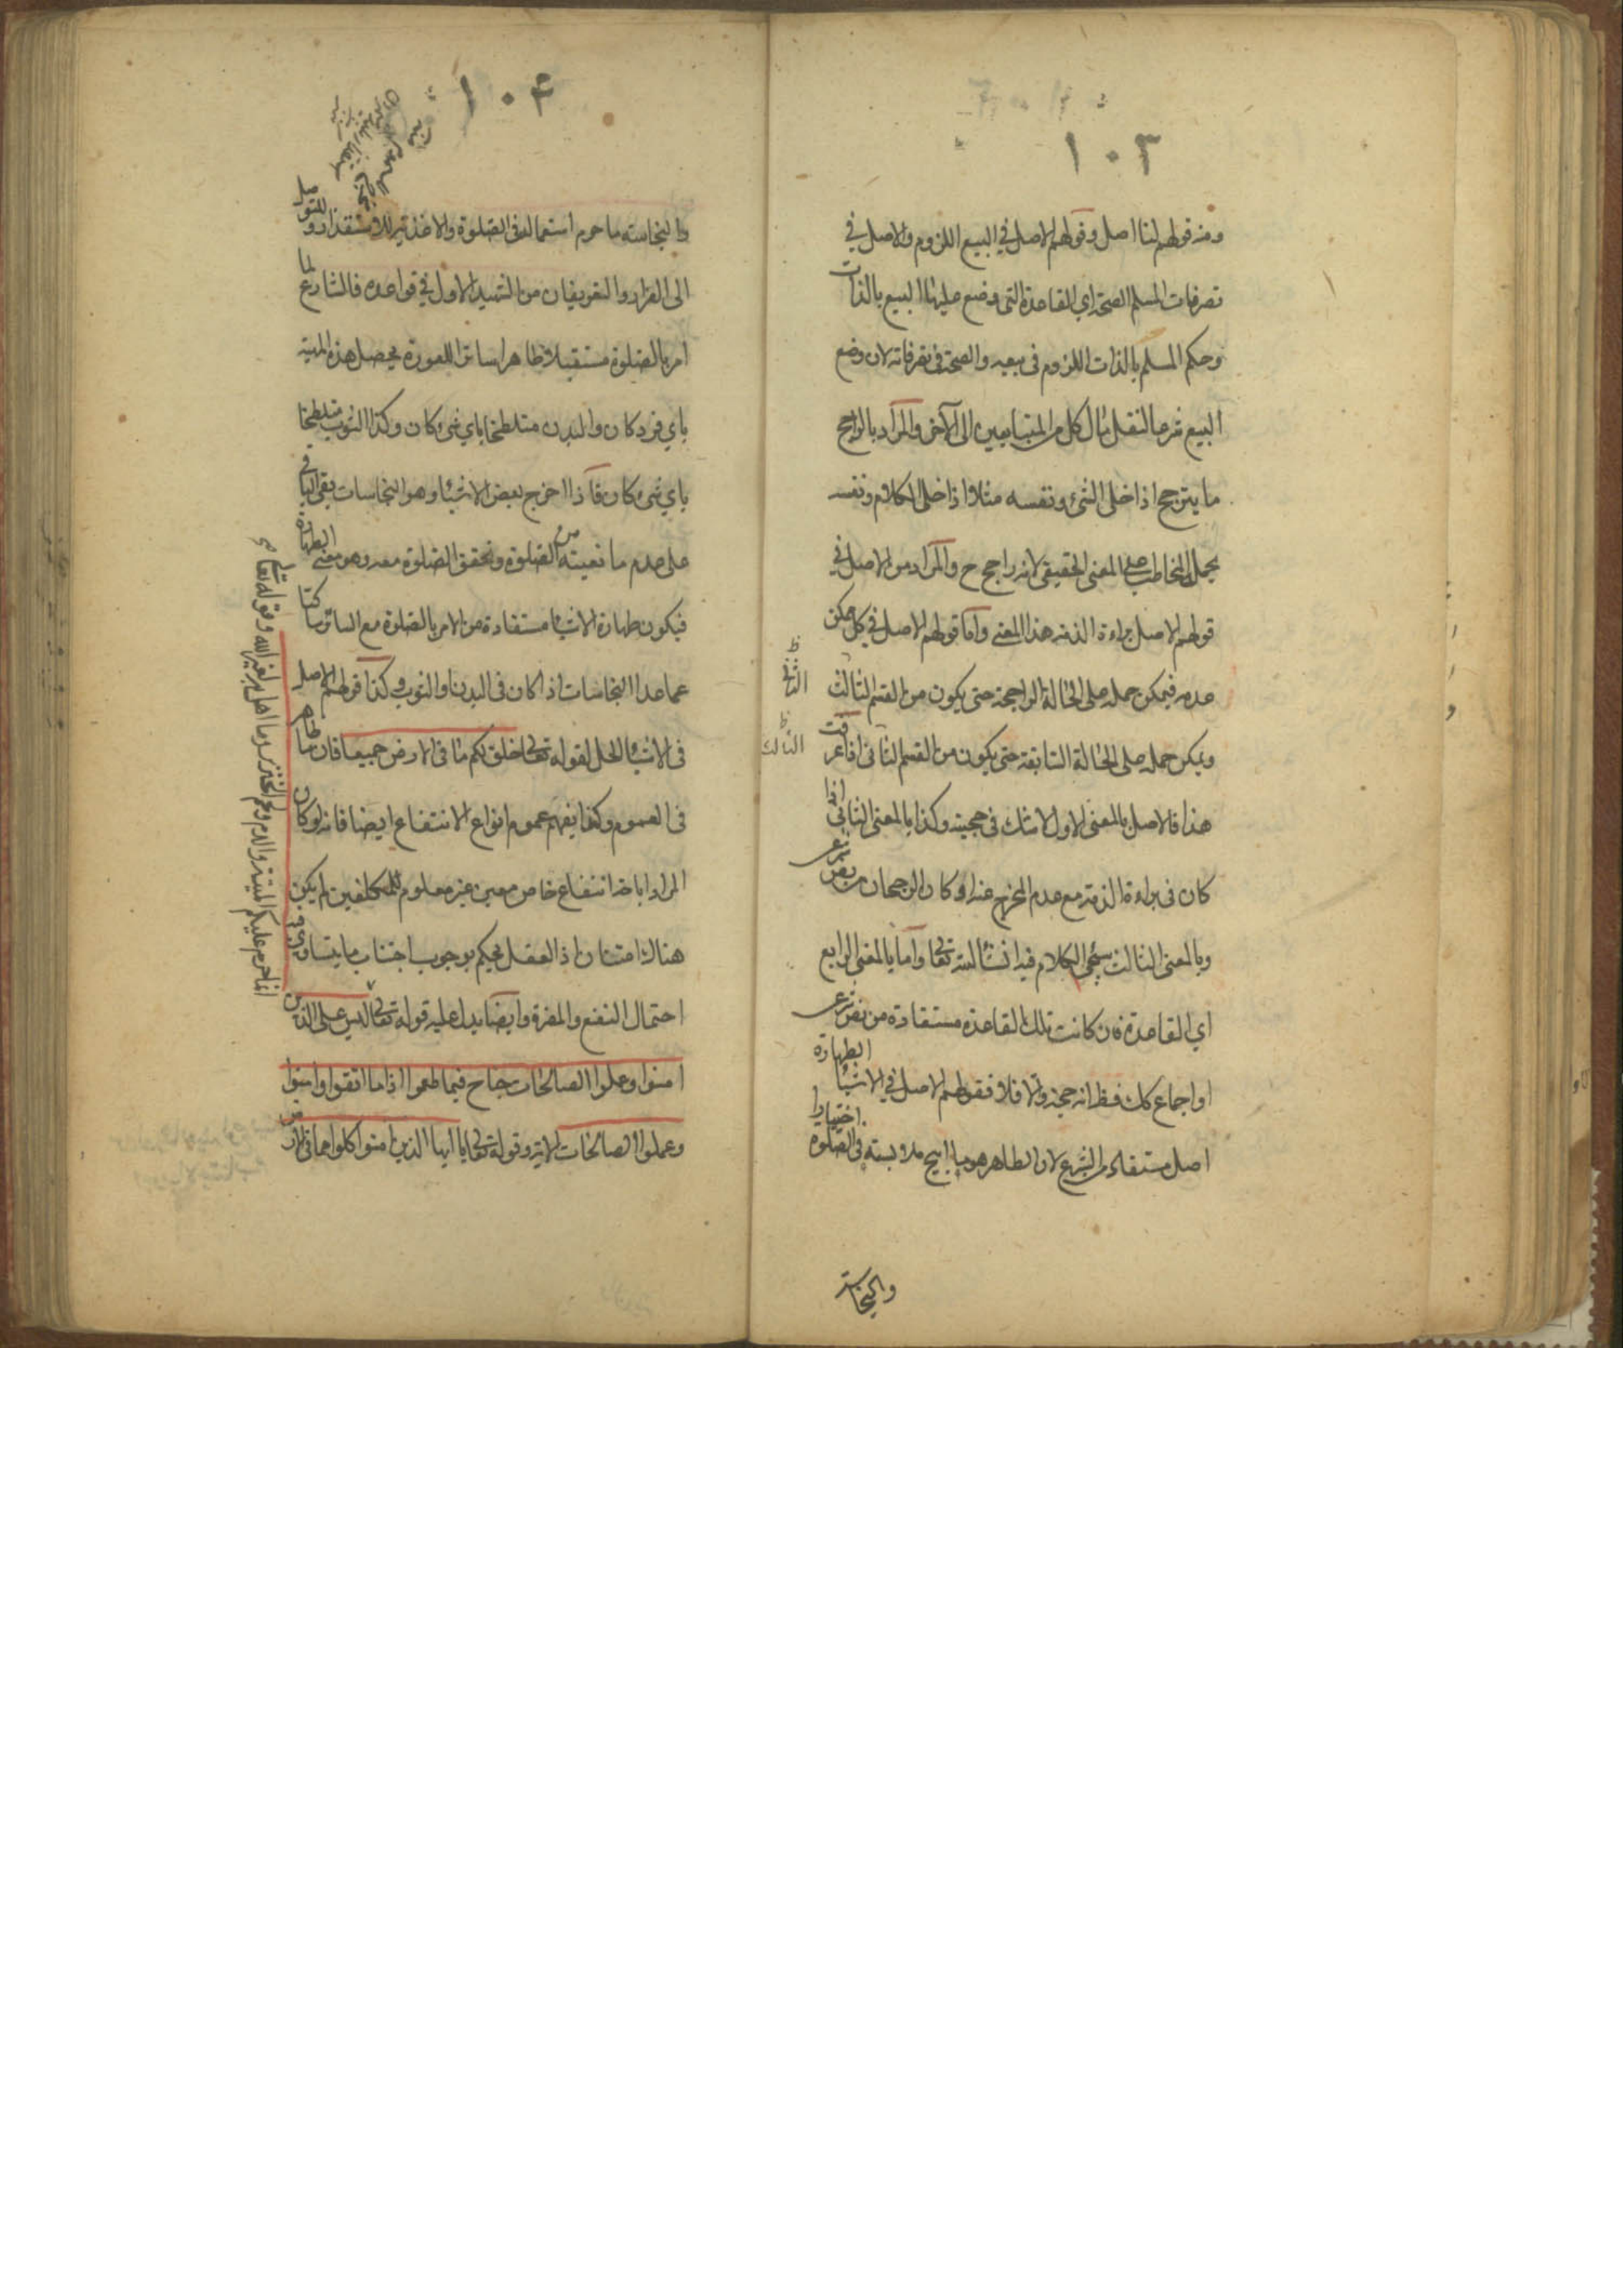 ١٠٣
ومنه قولهم لنا اصل وقولهم الاصل في البيع اللزوم والاصل في
تصرفات المسلم الصحة اي القاعدة التي وضع عليها البيع بالذات
وحكم المسلم بالذات اللزوم في بيعه والصحة في تصرفاته لان وضع
البيع شرعا لنقل مال كل من المتبايعين الى الآخر والمراد بالراجح
ما يترجح اذا خلى الشئ ونفسه مثلا اذا خلى الكلام ونفسه
يحمل المخاطب على المعنى الحقيقي لانه راجح ح والمراد من الاصل في
قولهم الاصل براءة الذمة هذا المعنى واما قولهم الاصل في كل ممكن
عدمه فيمكن حمله على الحالة الراجحة حتى يكون من القسم الثالث
الثاني ظ
ويمكن حمله على الحالة السابقة حتى يكون من القسم الثاني اذا عرفت
الثالث ظ
هذا فالاصل بالمعنى الاول لا شك في حجيته وكذا بالمعنى الثاني اذا
كان في براءة الذمة مع عدم المخرج عنه او كان الرجحان بنص شرعي
وبالمعنى الثالث سيجئ الكلام فيه انشا الله تعالى واما بالمعنى الرابع
اي القاعدة فان كانت تلك القاعدة مستفادة من نص شرعي
او اجماع كك فظ انه حجة والا فلا فقولهم الاصل في الاشيا الطهارة
اصل مستفاد من الشرع لان الطاهر هو ما ابيح ملابسته في الصلوة اختيارا
والنجاسة
١٠۴
والنجاسة ما حرم استعماله في الصلوة والاغذية للاستقذار وللتوصل
الى الفرار والتعريفان من الشهيد الاول في قواعده فالشارع لما
امر بالصلوة مستقبلا طاهرا ساترا للعورة يحصل هذه المهية
باي فرد كان والبدن متلطخا باي شئ كان وكذا الثوب متلطخا
باي شئ كان فاذا اخرج بعض الاشيا وهو النجاسات بقي الباقي
على عدم مانعيته من الصلوة وتحقق الصلوة معه وهو معنى الطهارة
فيكون طهارة الاشيا مستفادة من الامر بالصلوة مع الساتر ساكتا
عما عدا النجاسات اذا كان في البدن او الثوب وكذا قولهم الاصل
في الاشيا الحل لقوله تعالى خلق لكم ما في الارض جميعا فان ما ظاهر
في العموم وكذا يفهم عموم انواع الانتفاع ايضا فانه لو كان
المراد اباحة انتفاع خاص معين غير معلوم للمكلفين لم يكن
هناك امتنان اذ العقل يحكم بوجوب اجتناب ما يتساوى فيه
احتمال النفع والمضرة وايضا يدل عليه قوله تعالى ليس على الذين
امنوا وعملوا الصالحات جناح فيما طعموا اذا ما اتقوا وامنوا
وعملوا الصالحات الاية وقوله تعالى يا ايها الذين امنوا كلوا مما في الارض
انما حرم عليكم الميتة والدم ولحم الخنزير وما اهل به لغير الله وقوله تعالى